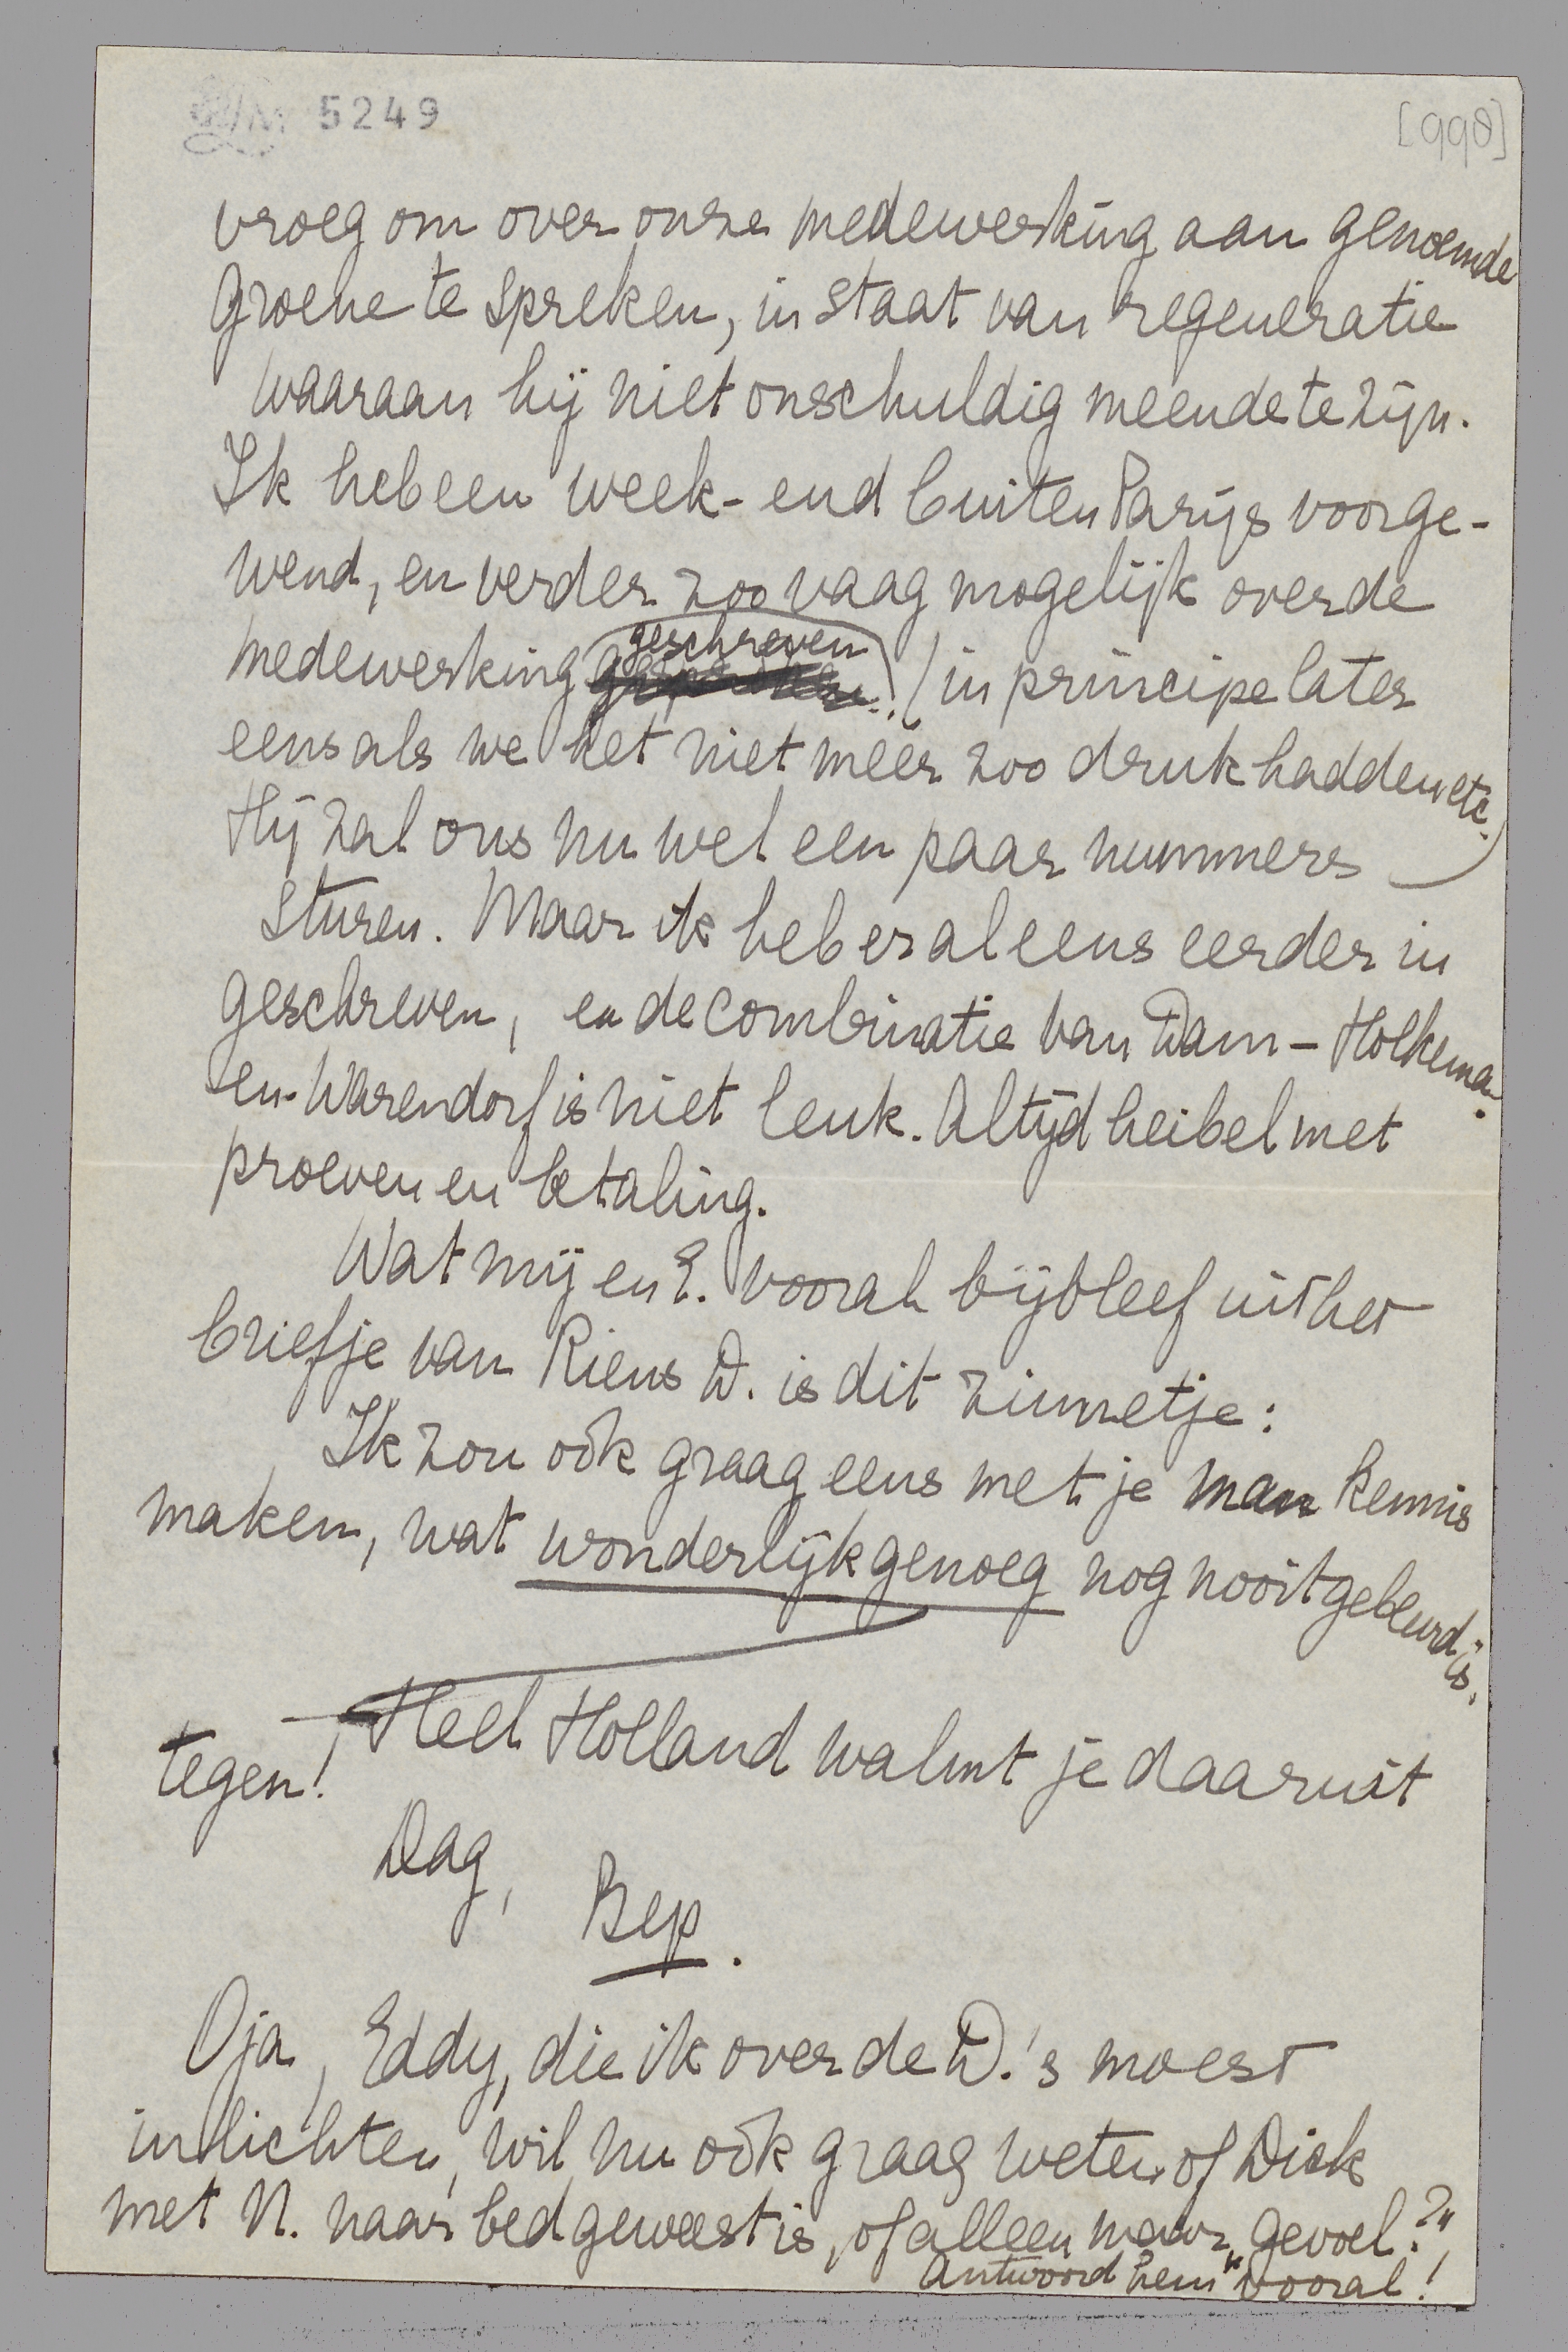 5249
[998]
vroeg om over onze medewerking aan genoemde
Groene te spreken, in staat van regeneratie
waaraan hij niet onschuldig meende te zijn.
Ik heb een week-end buiten Parijs voorge-
wend, en verder zoo vaag mogelijk over de
medewerking geschreven (in principe later
eens als we het niet méér zoo druk hadden etc.)
Hij zal ons nu wel een paar nummers
sturen. Maar ik heb er al eens eerder in
geschreven, en de combinatie van Dam - Holkema-
en-Warendorf is niet leuk. Altijd heibel met
proeven en betaling.
Wat mij en E. vooral bijbleef uit het
briefje van Riens D. is dit zinnetje:
Ik zou ook graag eens met je man kennis
maken, wat wonderlijk genoeg nog nooit gebeurd is.
— Heel Holland walmt je daaruit
tegen!
Dag,
Bep.
Oja, Eddy, die ik over de D.'s moest
inlichten, wil nu ook graag weten of Dick
met N. naar bed geweest is, of alleen maar „gevoel"?
Antwoord hem vooral!